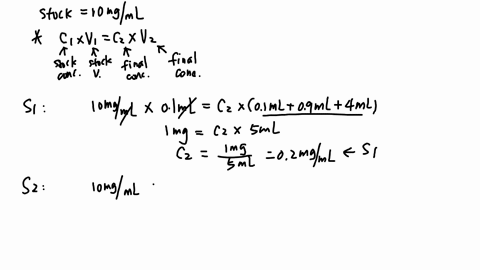 stock = 10mg/mL
* C1 x V1 = C2 x V2
stock conc. stock V. final conc. final conc.
S1: 10mg/mL x 0.1mL = C2 x (0.1mL + 0.9mL + 4mL)
1mg = C2 x 5mL
C2 = 1mg/5mL = 0.2mg/mL ← S1
S2: 10mg/mL